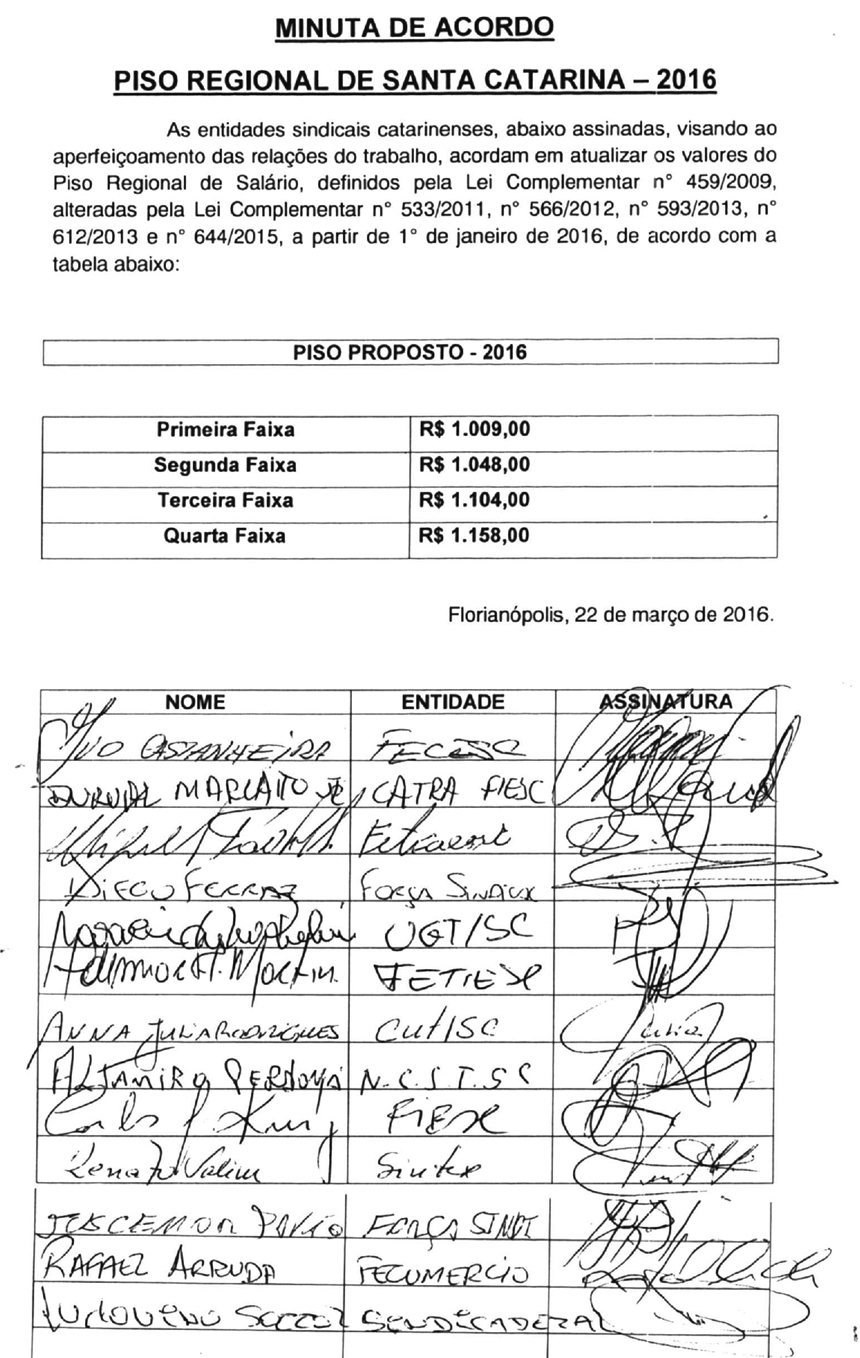 MINUTA DE ACORDO
PISO REGIONAL DE SANTA CATARINA – 2016
As entidades sindicais catarinenses, abaixo assinadas, visando ao
aperfeiçoamento das relações do trabalho, acordam em atualizar os valores do
Piso Regional de Salário, definidos pela Lei Complementar n° 459/2009,
alteradas pela Lei Complementar n° 533/2011, n° 566/2012, n° 593/2013, n°
612/2013 e n° 644/2015, a partir de 1° de janeiro de 2016, de acordo com a
tabela abaixo:
PISO PROPOSTO - 2016
Primeira Faixa R$ 1.009,00
Segunda Faixa R$ 1.048,00
Terceira Faixa R$ 1.104,00
Quarta Faixa R$ 1.158,00
Florianópolis, 22 de março de 2016.
NOME ENTIDADE ASSINATURA
IVO CASTANHEIRA FECESC
DURVAL MARCATTO JR CATRA FIESC
DIEGO FERRAZ FORÇA SINDICAL
UGT/SC
FETIESC
ANNA JULIA RODRIGUES CUT/SC
ALTAMIRO N.C.S.T. SC
FIESC
Renato Valim
FORÇA SINDI
RAFAEL ARRUDA FECOMERCIO